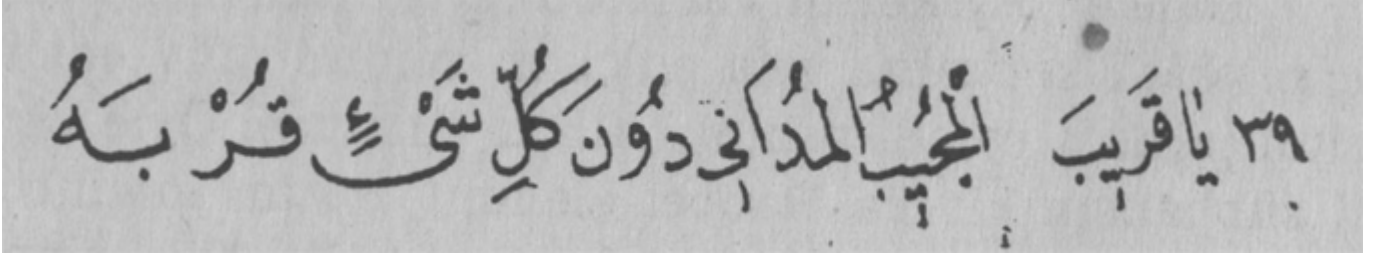 ٣٩ يَا قَرِيبَ الْمُجِيبُ الْمُدَانِي دُوْنَ كُلِّ شَيْءٍ قُرْبَهُ